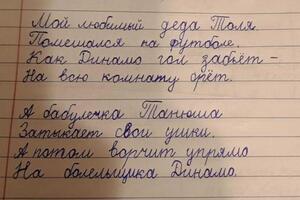 Мой любимый деда Толя
Помешался на футболе.
Как Динамо гол забьёт -
На всю комнату орёт.
А бабулечка Танюша
Затыкает свои ушки.
А потом ворчит упрямо
На болельщика Динамо.